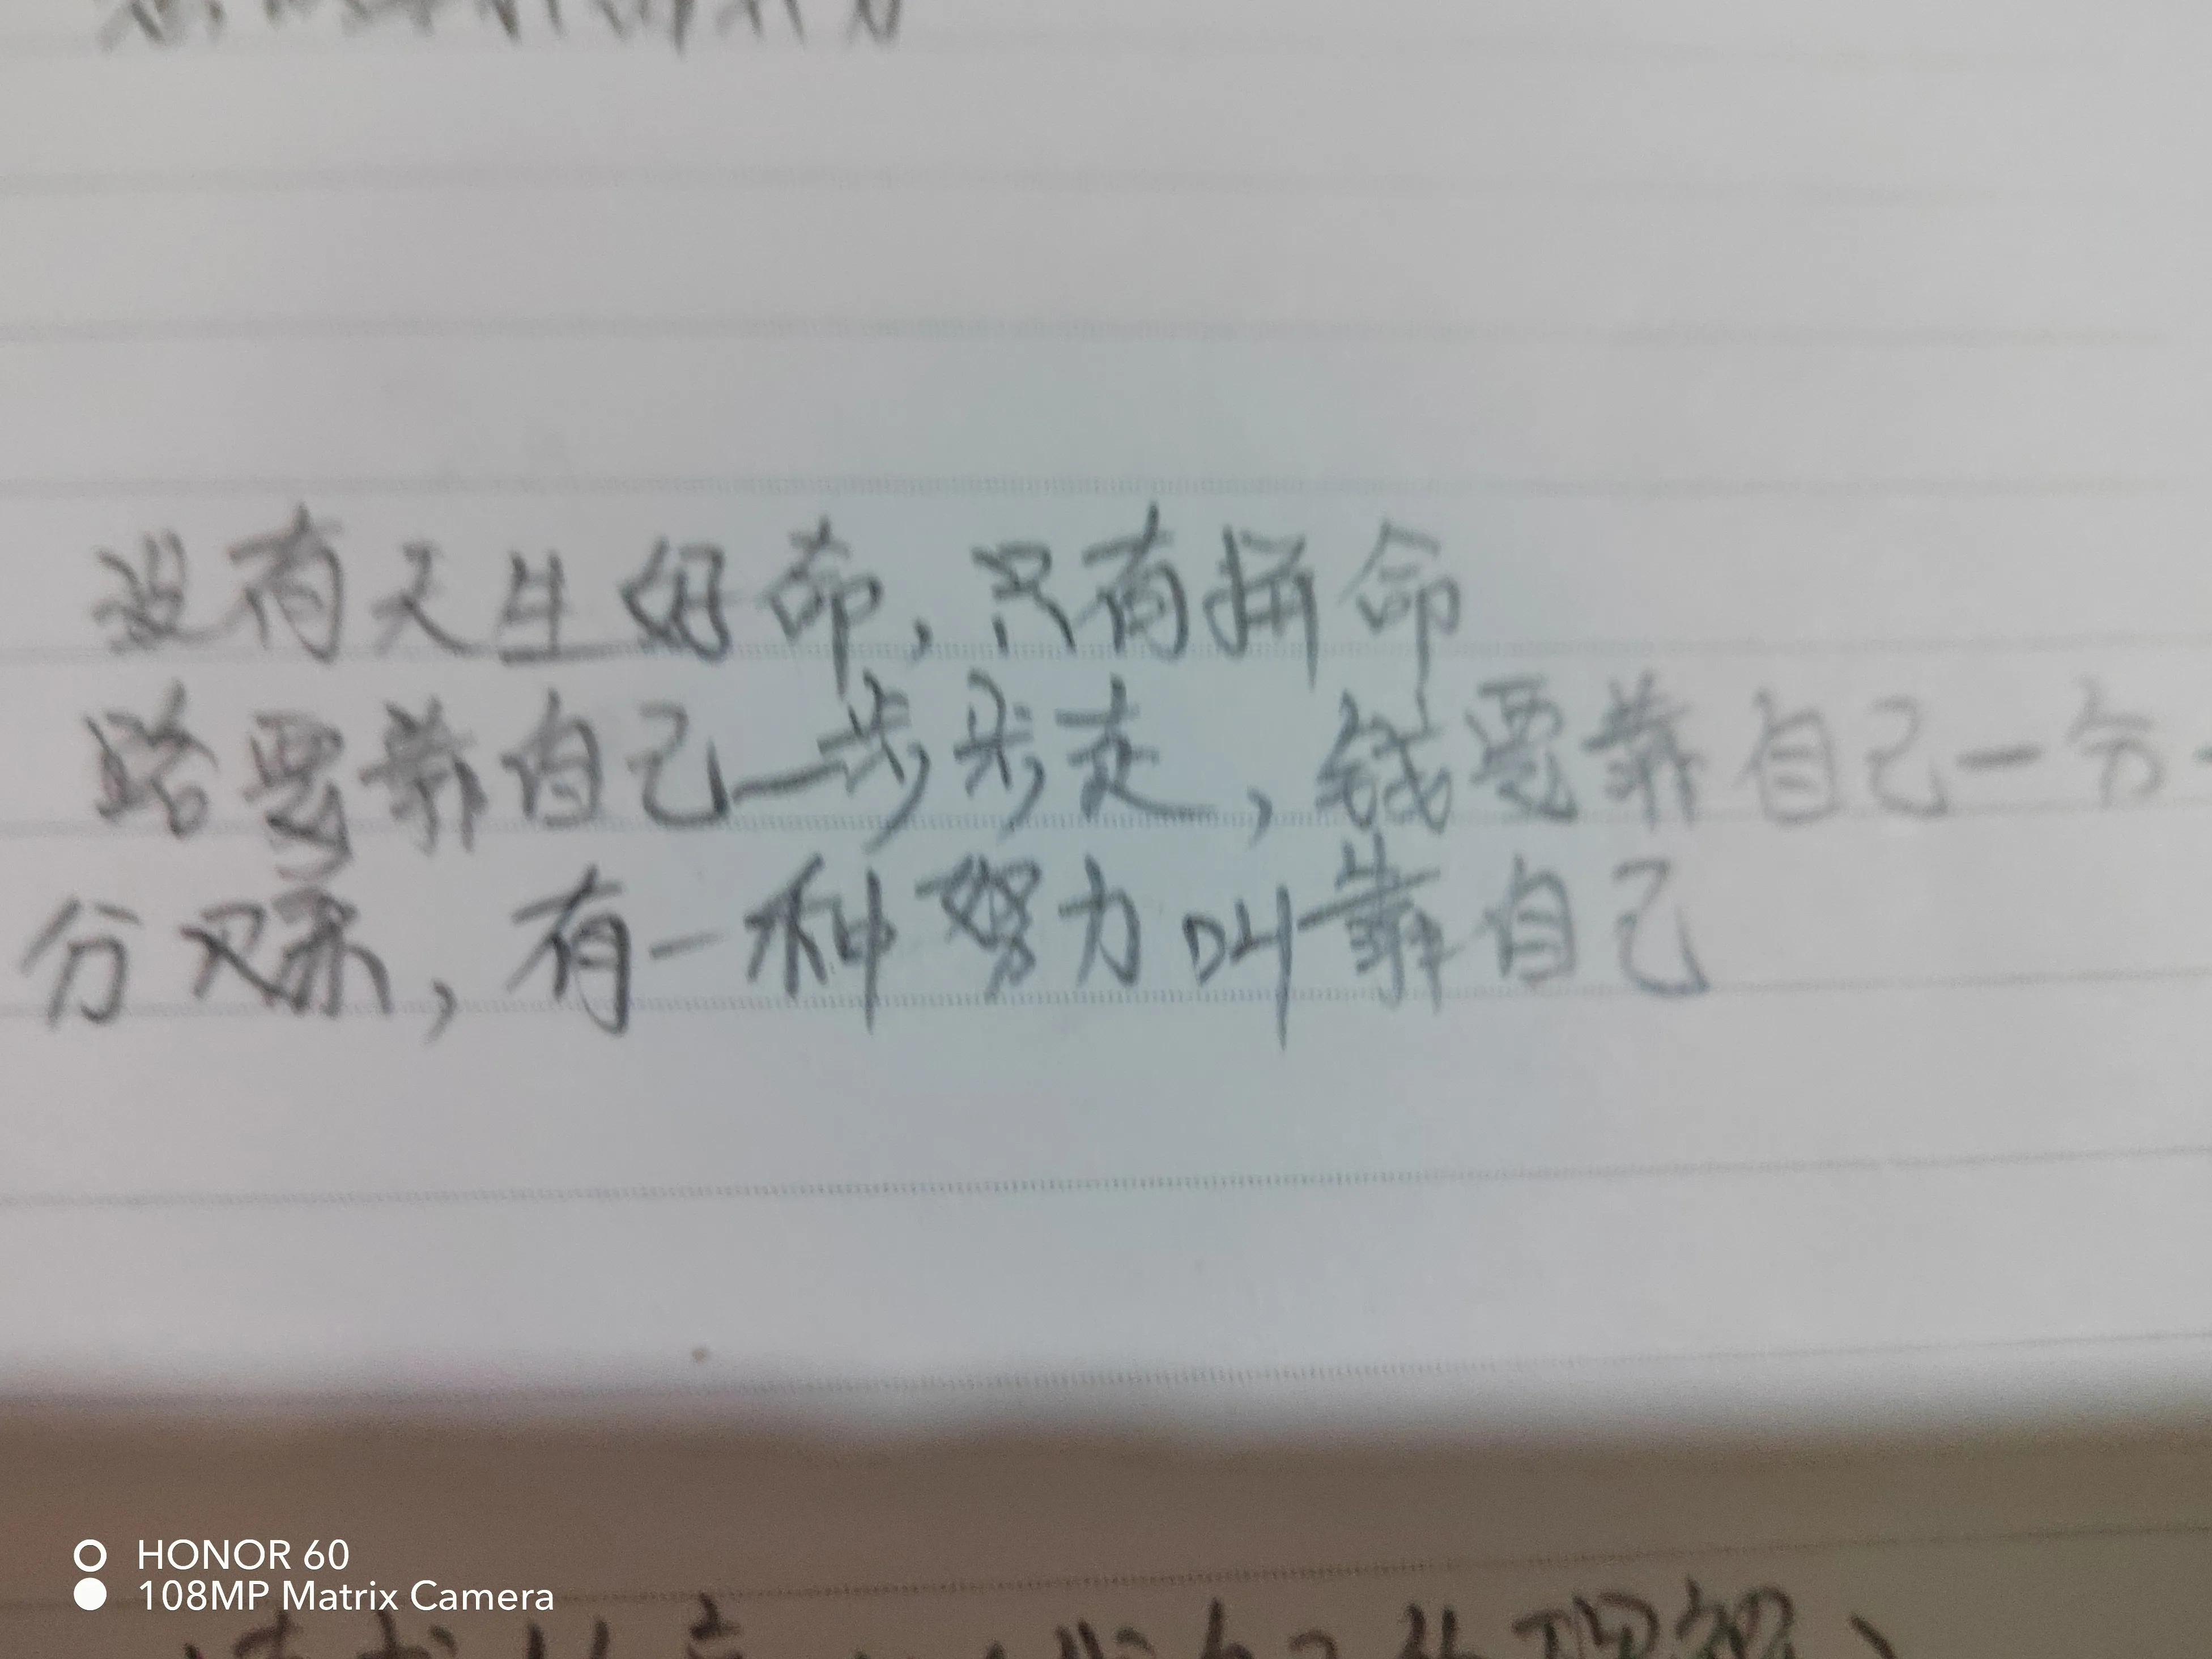 没有天生好命，只有拼命
路要靠自己一步步走，钱要靠自己一分一
分赚，有一种努力叫靠自己
HONOR 60
108MP Matrix Camera